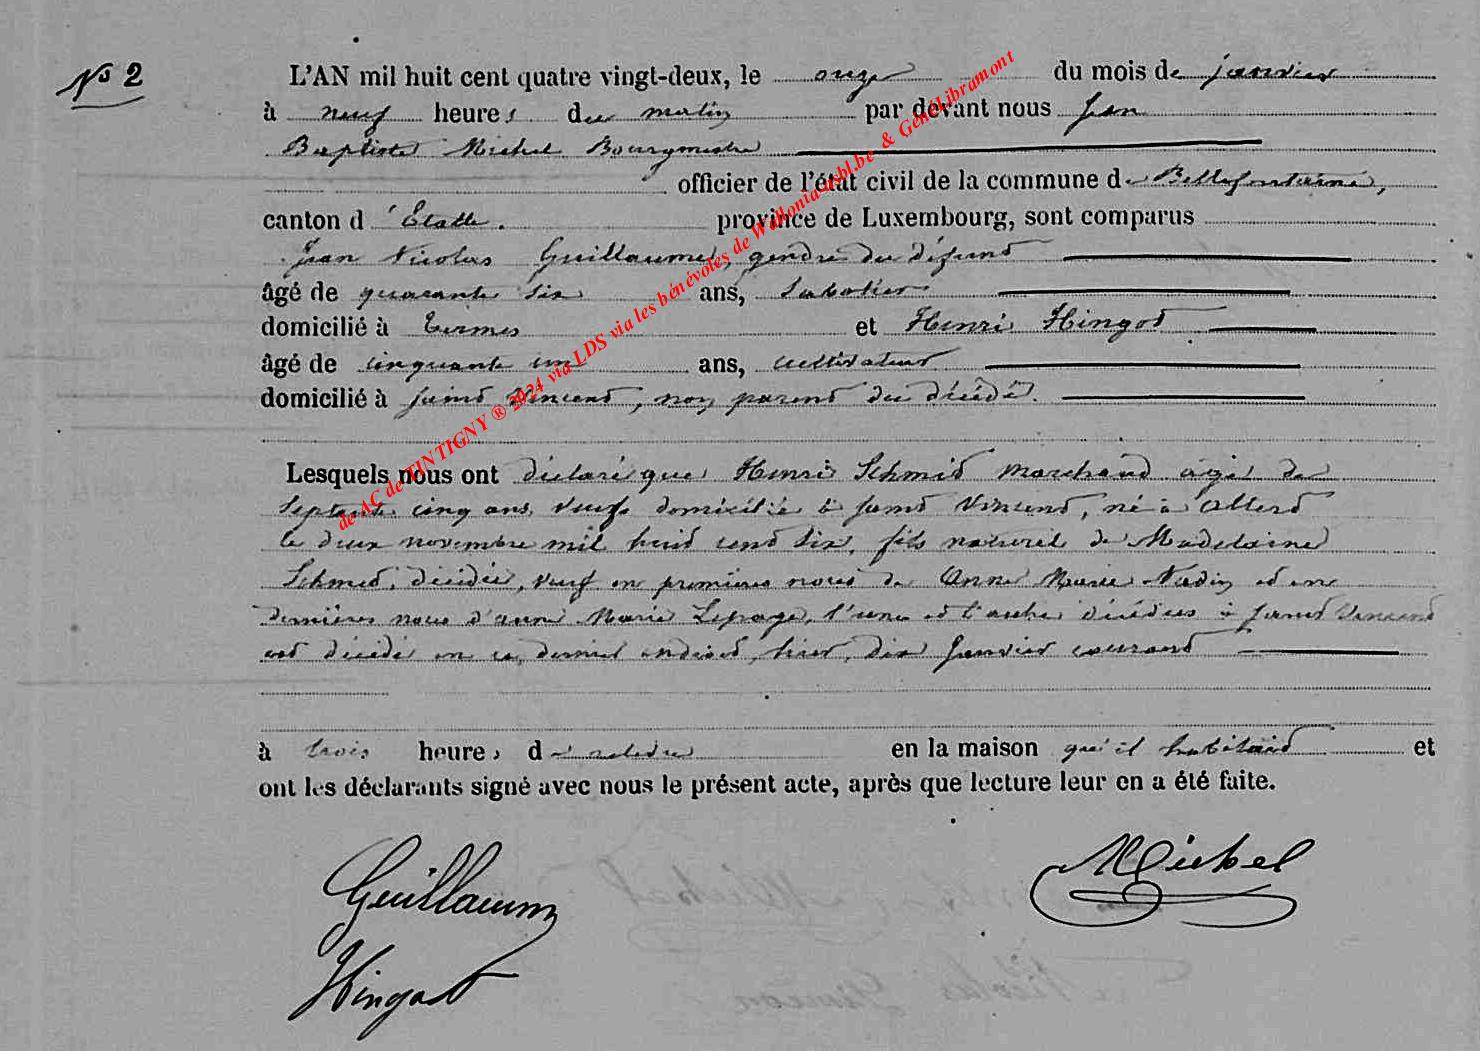 No 2
L'AN mil huit cent quatre vingt-deux, le onze du mois de janvier
à neuf heures du matin par devant nous Jean
Baptiste Michel Bourgmestre
officier de l'état civil de la commune de Bellefontaine,
canton d'Etalle. province de Luxembourg, sont comparus
Jean Nicolas Guillaume, gendre du défunt
âgé de quarante six ans, sabotier
domicilié à Termes et Henri Hingot
âgé de cinquante un ans, cultivateur
domicilié à Saint Vincent, non parent du décédé.
Lesquels nous ont déclaré que Henri Schmid marchand agé de
septante cinq ans, veuf domicilié à Saint Vincent, né à Attert
le deux novembre mil huit cent six, fils naturel de Madelaine
Schmid, décédée, veuf en premières noces de Anne Marie Nadin et en
dernières noces d'anne Marie Lepage, l'une et l'autre décédées à Saint Vincent
est décédé en ce dernier endroit, hier, dix Janvier courant
à trois heures de relevée en la maison qu'il habitait et
ont les déclarants signé avec nous le présent acte, après que lecture leur en a été faite.
Guillaume
Michel
Hingot
de AC de TINTIGNY ® 2024 via LDS via les bénévoles de Wallonia-asbl.be & GénéLibramont